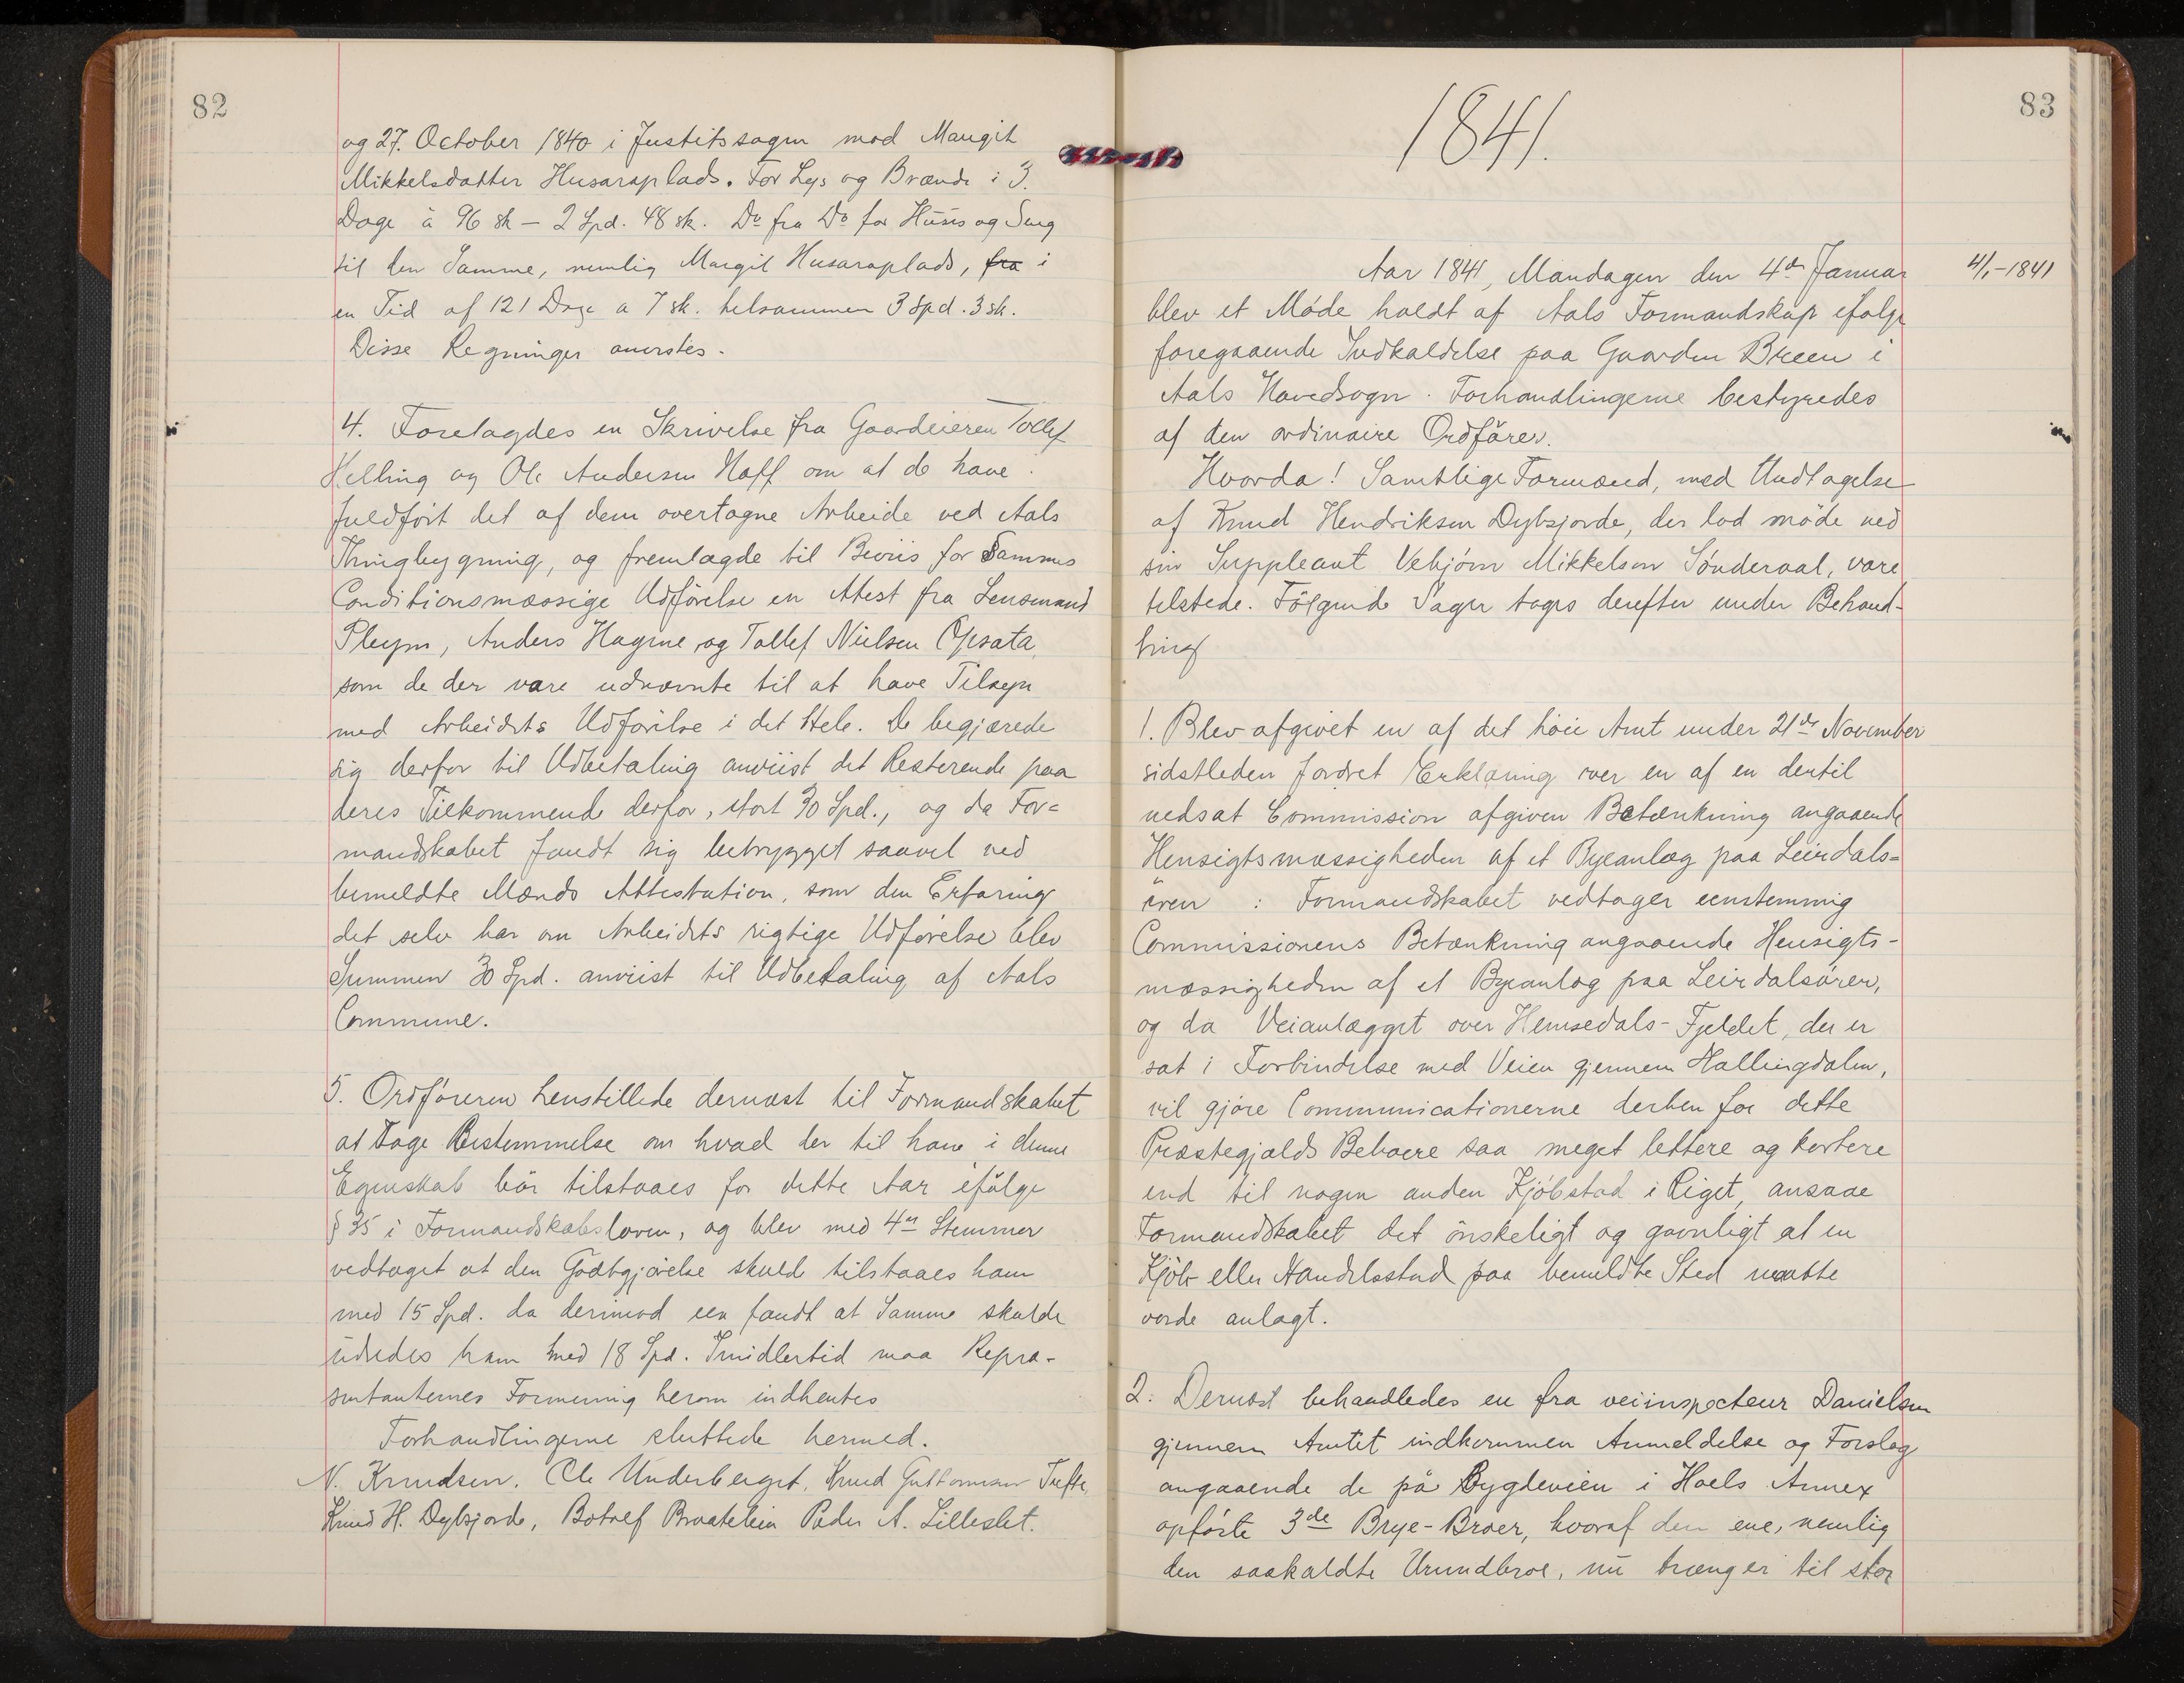 82
og 27. October 1840 i Justitssagen mod Margit
Mikkelsdatter Husaraplads. For Lys og Brænde i 3.
Dage à 96 sk – 2 Spd. 48 sk. Do fra Do for Huus og Seng
til den Samme, nemlig Margit Husaraplads, fra i
en Tid af 121 Dage a 7 sk. tilsammen 3 Spd. 3 sk.
Disse Regninger anvistes.
4. Foretagdes en Skrivelse fra Gaardeieren Tollef
Helling og Ole Andersen Noss om at de have
fuldført det af dem overtagne Arbeide ved Aals
Thingbygning, og fremlagde til Beviis for Sammes
Conditionsmæssige Udførelse en Attest fra Lensmand
Pleym, Anders Hagene og Tollef Nielsen Opsata,
som de der vare udnævnte til at have Tilsyn
med Arbeidets Udførelse i det Hele. De begjærede
sig derfor til Udbetaling anviist det Resterende paa
deres Tilkommende derfor, stort 30 Spd., og da For=
mandskabet fandt sig betrygget saavel ved
bemeldte Mænds Attestation, som den Erfaring
det selv har om Arbeidets rigtige Udførelse blev
Summen 30 Spd. anviist til Udbetaling af Aals
Commune.
5. Ordføreren henstillede dernæst til Formandskabet
at tage Bestemmelse om hvad der til ham i denne
Egenskab bør tilstaaes for dette Aar ifølge
§ 35 i Formandskabsloven, og blev med 4re Stemmer
vedtaget at den Godtgjørelse skulde tilstaaes ham
med 15 Spd. da derimod een fandt at Samme skulde
udredes ham med 18 Spd. Imidlertid maa Repræ-
sentanternes Formening herom indhentes
Forhandlingerne sluttede hermed.
N. Knudsen. Ole Underberget. Knud Guttormsen Tufte,
Knud H. Dybsjorde, Botolf Braatelien Peder A. Lilleslet.
83
1841.
4/1-1841
Aar 1841, Mandagen den 4de Januar
blev et Møde holdt af Aals Formandskap ifølge
foregaaende Indkaldelse paa Gaarden Breen i
Aals Hovedsogn. Forhandlingerne bestyredes
af den ordinaire Ordfører.
Hvorda! Samtlige Formænd, med Undtagelse
af Knud Hendriksen Dybsjorde, der lod møde ved
sin Suppleant Vebjørn Mikkelsen Sønderaal, vare
tilstede. Følgende Sager toges derefter under Behand-
ling
1. Blev afgivet en af det høie Amt under 21de November
sidstleden fordret Erklæring over en af en dertil
nedsat Commission afgiven Betænkning angaaende
Hensigtsmæssigheden af et Byeanlæg paa Leirdals=
øren : Formandskabet vedtager eenstemmig
Commissionens Betænkning angaaende Hensigts-
mæssigheden af et Byeanlæg paa Leirdalsøren,
og da Veianlægget over Hemsedals-Fjeldet, der er
sat i Forbindelse med Veien gjennem Hallingdalen,
vil gjøre Communicationerne derhen for dette
Præstegjælds Beboere saa meget lettere og kortere
end til nogen anden Kjøbstad i Riget, ansaae
Formandskabet det ønskeligt og gavnligt at en
Kjøb- eller Handelsstad paa bemeldte Sted maatte
vorde anlagt.
2. Dernæst behandledes en fra veiinspecteur Danielsen
gjennem Amtet indkommen Anmeldelse og Forslag
angaaende de på Bygdeveien i Hoels Annex
opførte 3de Brye-Broer, hvoraf den ene, nemlig
den saakaldte Urundbroe, nu trænger til stor